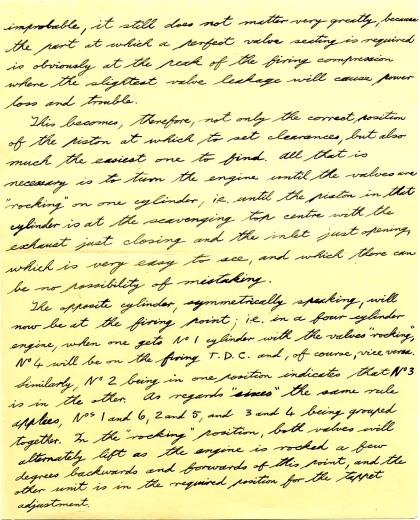 improbable, it still does not matter very greatly, because
the part at which a perfect valve seating is required
is obviously at the peak of the firing compression
where the slightest valve leakage will cause power
loss and trouble.
This becomes, therefore, not only the correct position
of the piston at which to set clearances, but also
much the easiest one to find. All that is
necessary is to turn the engine until the valves are
"rocking" on one cylinder, i.e. until the piston in that
cylinder is at the scavenging top centre with the
exhaust just closing and the inlet just opening,
which is very easy to see, and which there can
be no possibility of mistaking.
The opposite cylinder, symmetrically speaking, will
now be at the firing point; i.e. in a four cylinder
engine, when one gets Nº1 cylinder with the valves "rocking",
Nº4 will be on the firing T.D.C. and, of course, vice versa.
Similarly, Nº2 being in one position indicates that Nº3
is in the other. As regards "sixes" the same rule
applies, Nºs 1 and 6, 2 and 5, and 3 and 4 being grouped
together. In the "rocking" position, both valves will
alternately lift as the engine is rocked a few
degrees backwards and forwards of this point, and the
other unit is in the required position for the tappet
adjustment.